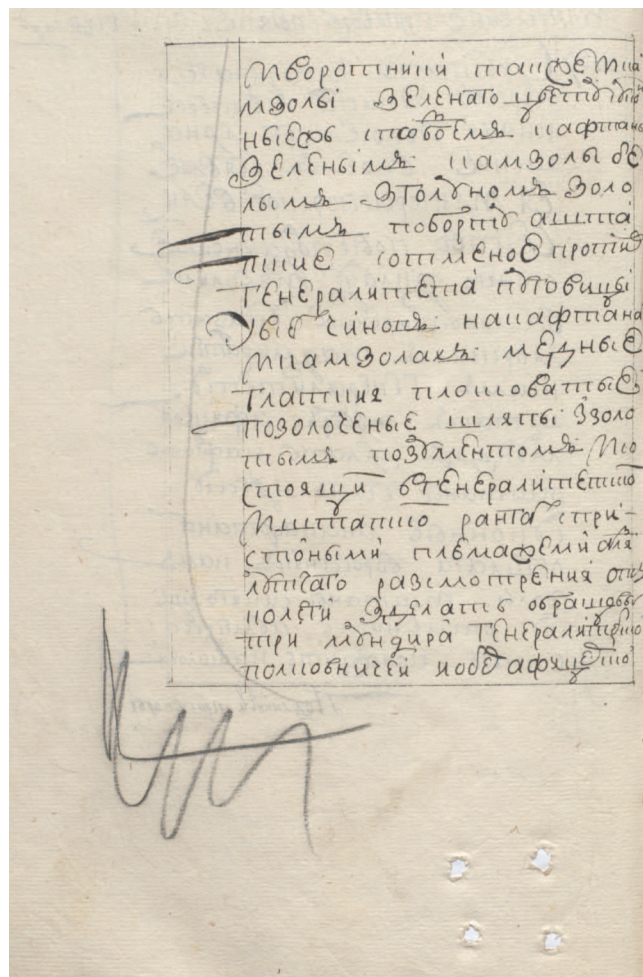 и воротники также и ка
мзолы зеленаго цвету ...
ныехъ штабовъ кафтаны
зеленымя камзолы бе
лымя з голуномъ золо
тымъ по борту а шта
пские с отменою против
генералитета пуговицы
у всех чиноп на кафтана
и камзолахъ медные
глаткия плосковатые
позолоченые шляпы з золо
тымъ позументомъ и со
стоящи в генералитетско
и штапско ранга с при
стойными плюмажеми для
лутчаго разсмотрения от
колеги зделать образцовы
три мундира генералитецко
полковничей и обер афицерско